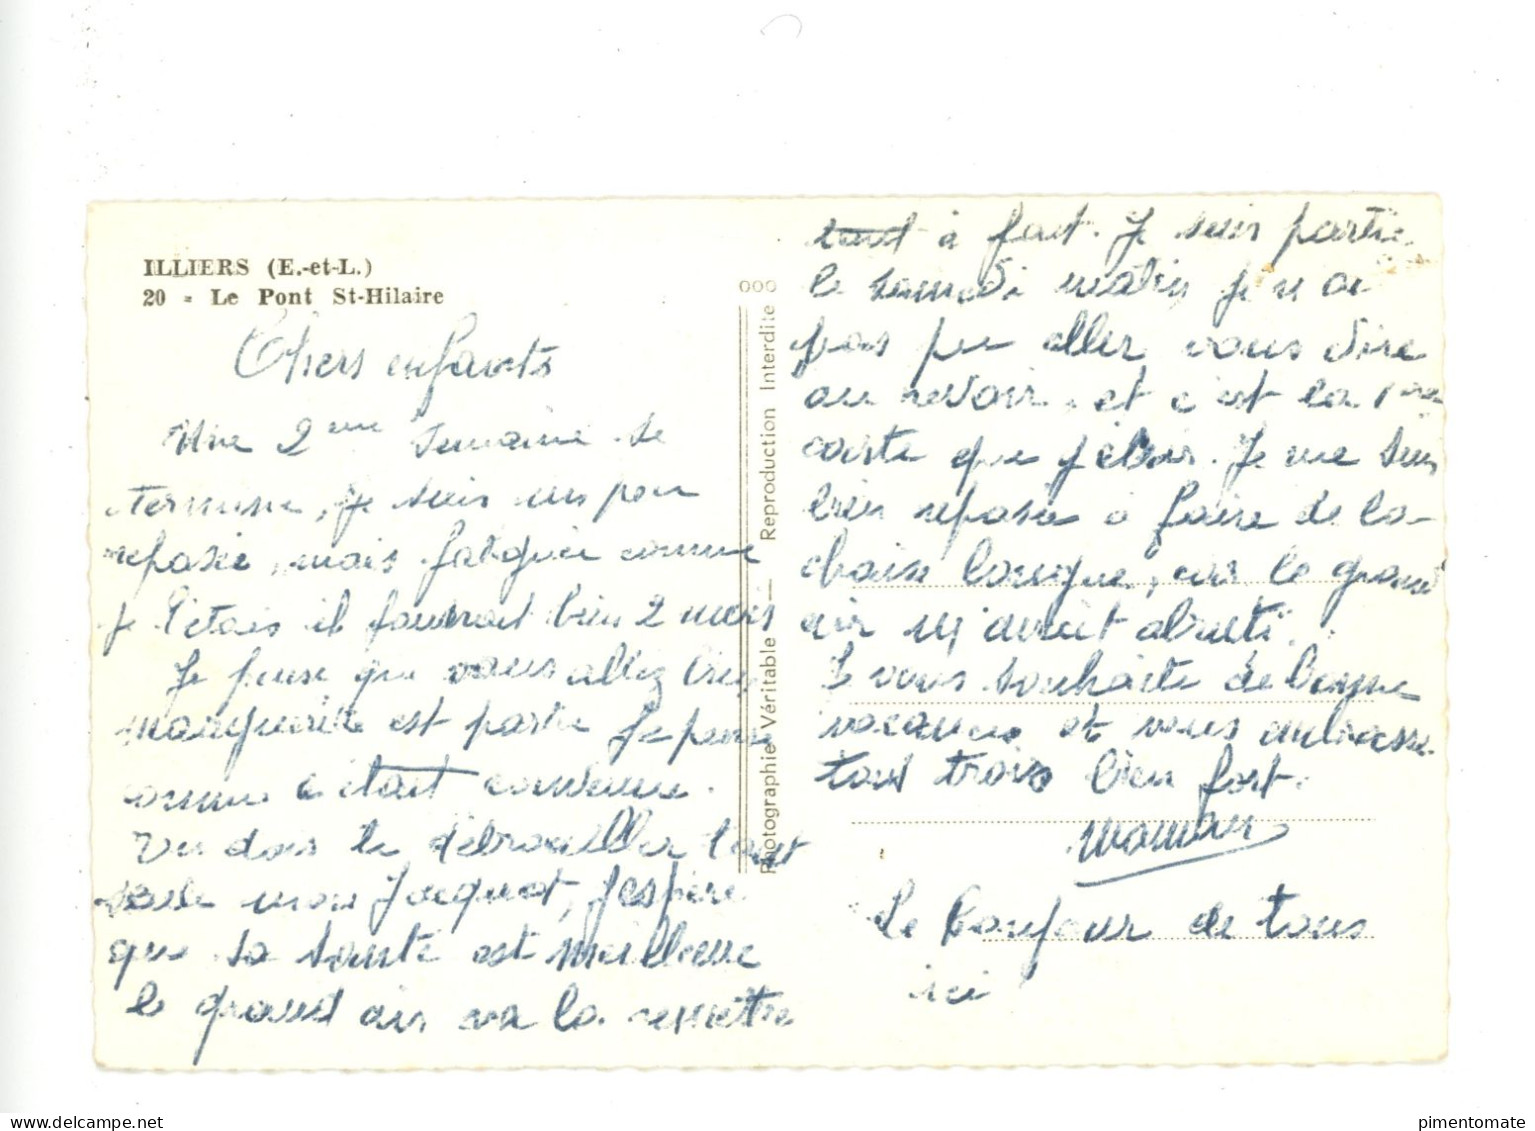 ILLIERS (E.-et-L.)
20 - Le Pont St-Hilaire
Chers enfants
Une 2ème semaine se
termine, je suis un peu
reposée, mais fatiguée comme
je l'étais il faudrait bien 2 mois
Je pense que vous allez bien
marguerite est partie je pense
comme c'était convenu.
Tu dois te débrouiller tout
seule mon Jacquot, j'espère
que ta santé est meilleure
le grand air va la remettre
tout à fait. Je suis partie
le samedi matin je n'ai
pas pu aller vous dire
au revoir, et c'est la 1ère
carte que j'écris. Je me suis
bien reposée à faire de la
chaise longue, car le grand
air m'avait abruti.
Je vous souhaite de bonne
vacances et vous embrasse
tout trois bien fort.
maman
Le bonjour de tous
ici
Photographie Véritable — Reproduction Interdite
pimentomate